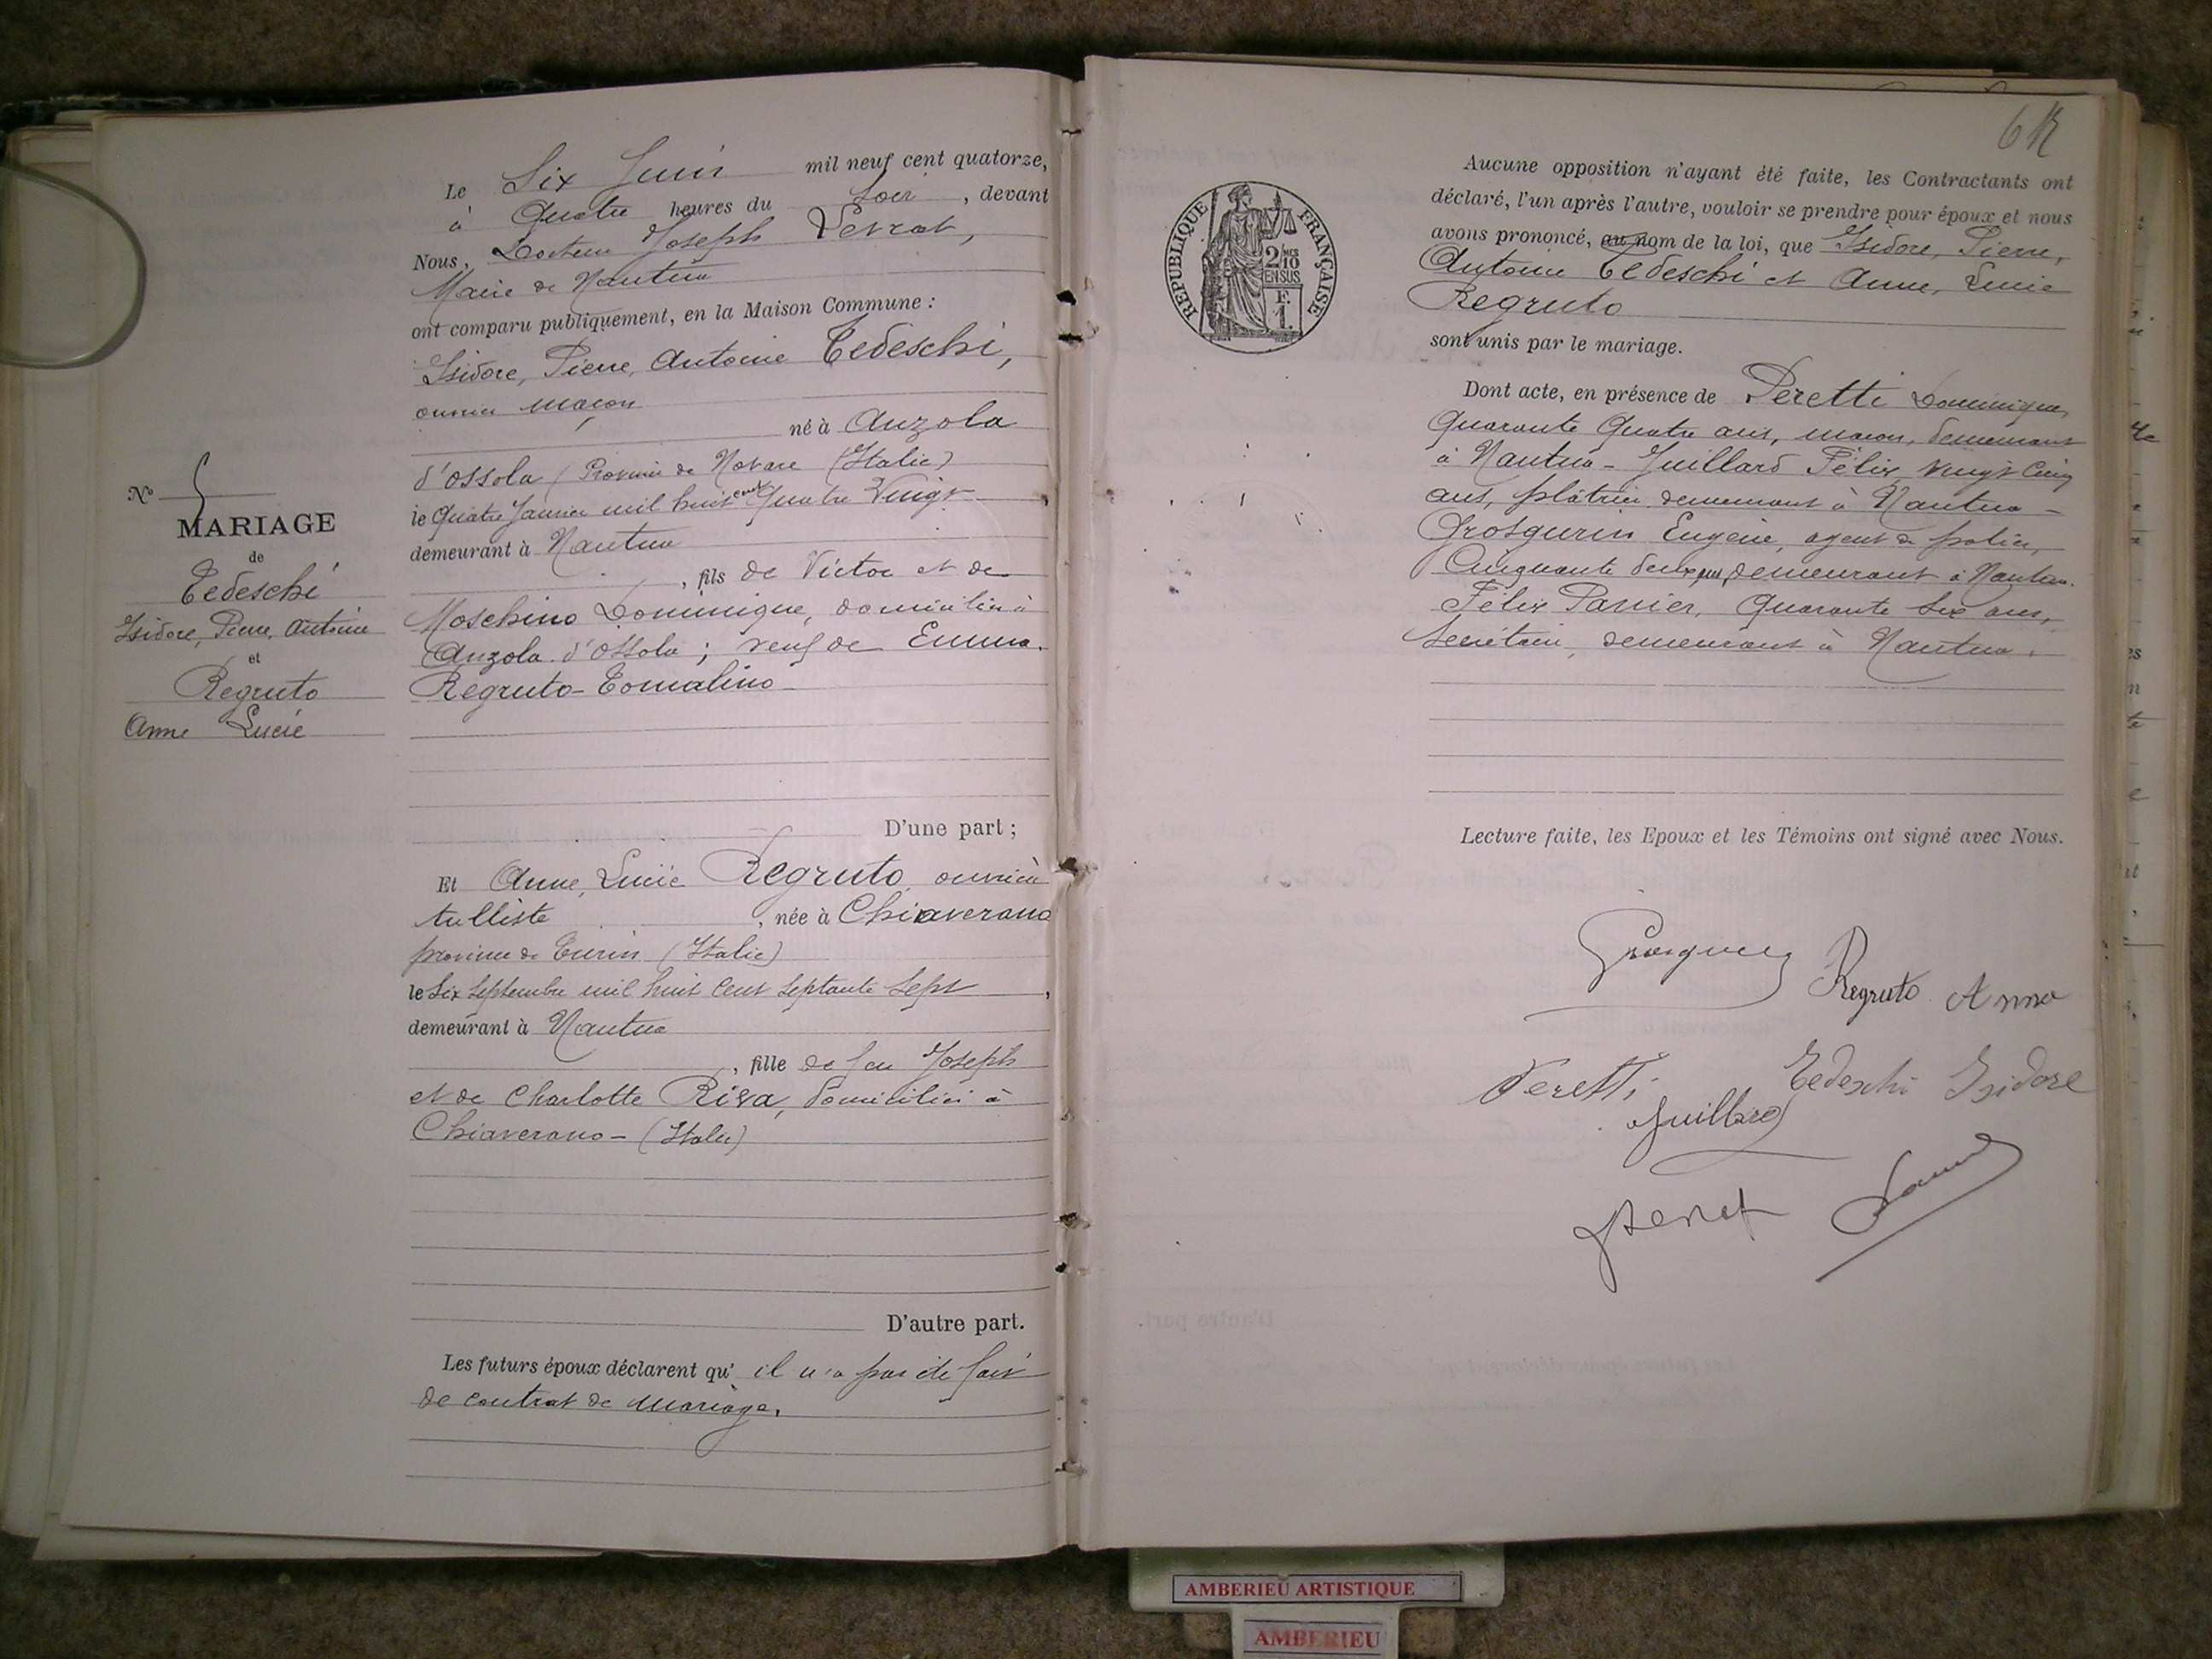 N° 5
MARIAGE
de
Tedeschi
Isidore, Pierre, Antoine
et
Regruto
Anne Lucie
Le Six Juin mil neuf cent quatorze,
à Quatre heures du Soir, devant
Nous, Docteur Joseph Levrat,
Maire de Nantua
ont comparu publiquement, en la Maison Commune :
Isidore, Pierre, Antoine Tedeschi,
ouvrier maçon
né à Anzola
d'Ossola (Province de Novare (Italie)
le Quatre Janvier mil huit cent Quatre Vingt
demeurant à Nantua
, fils de Victor et de
Moschino Dominique, domiciliés à
Anzola d'Ossola ; veuf de Emma
Regruto-Tomalino
D'une part ;
Et Anne, Lucie Regruto, ouvrière
tulliste, née à Chiaverano
province de Turin (Italie)
le Six Septembre mil huit cent septante sept,
demeurant à Nantua
, fille de feu Joseph
et de Charlotte Riva, domiciliés à
Chiaverano - (Italie)
D'autre part.
Les futurs époux déclarent qu'il n'a pas été fait
de contrat de mariage.
6
REPUBLIQUE FRANÇAISE
2/10
EN SUS
F.
1.
Aucune opposition n'ayant été faite, les Contractants ont
déclaré, l'un après l'autre, vouloir se prendre pour époux et nous
avons prononcé, au nom de la loi, que Isidore, Pierre,
Antoine Tedeschi et Anne, Lucie
Regruto
sont unis par le mariage.
Dont acte, en présence de Peretti Dominique,
Quarante Quatre ans, maçon, demeurant
à Nantua - Juillard Félix, vingt cinq
ans, plâtrier demeurant à Nantua -
Grosgurin Eugène, agent de police,
Cinquante deux ans, demeurant à Nantua.
Félix Panier, Quarante six ans,
Secrétaire, demeurant à Nantua.
Lecture faite, les Epoux et les Témoins ont signé avec Nous.
Grosgurin
Regruto Anna
Peretti
Tedeschi Isidore
Juillard
AMBERIEU ARTISTIQUE
AMBERIEU